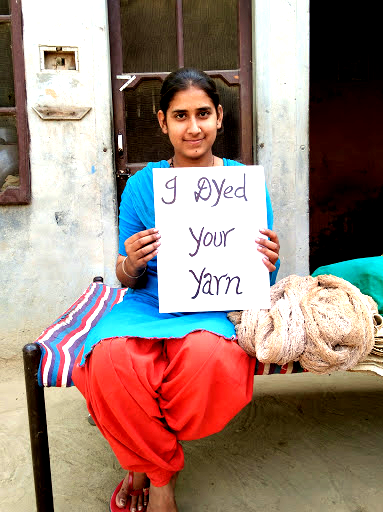 I Dyed
your
Yarn